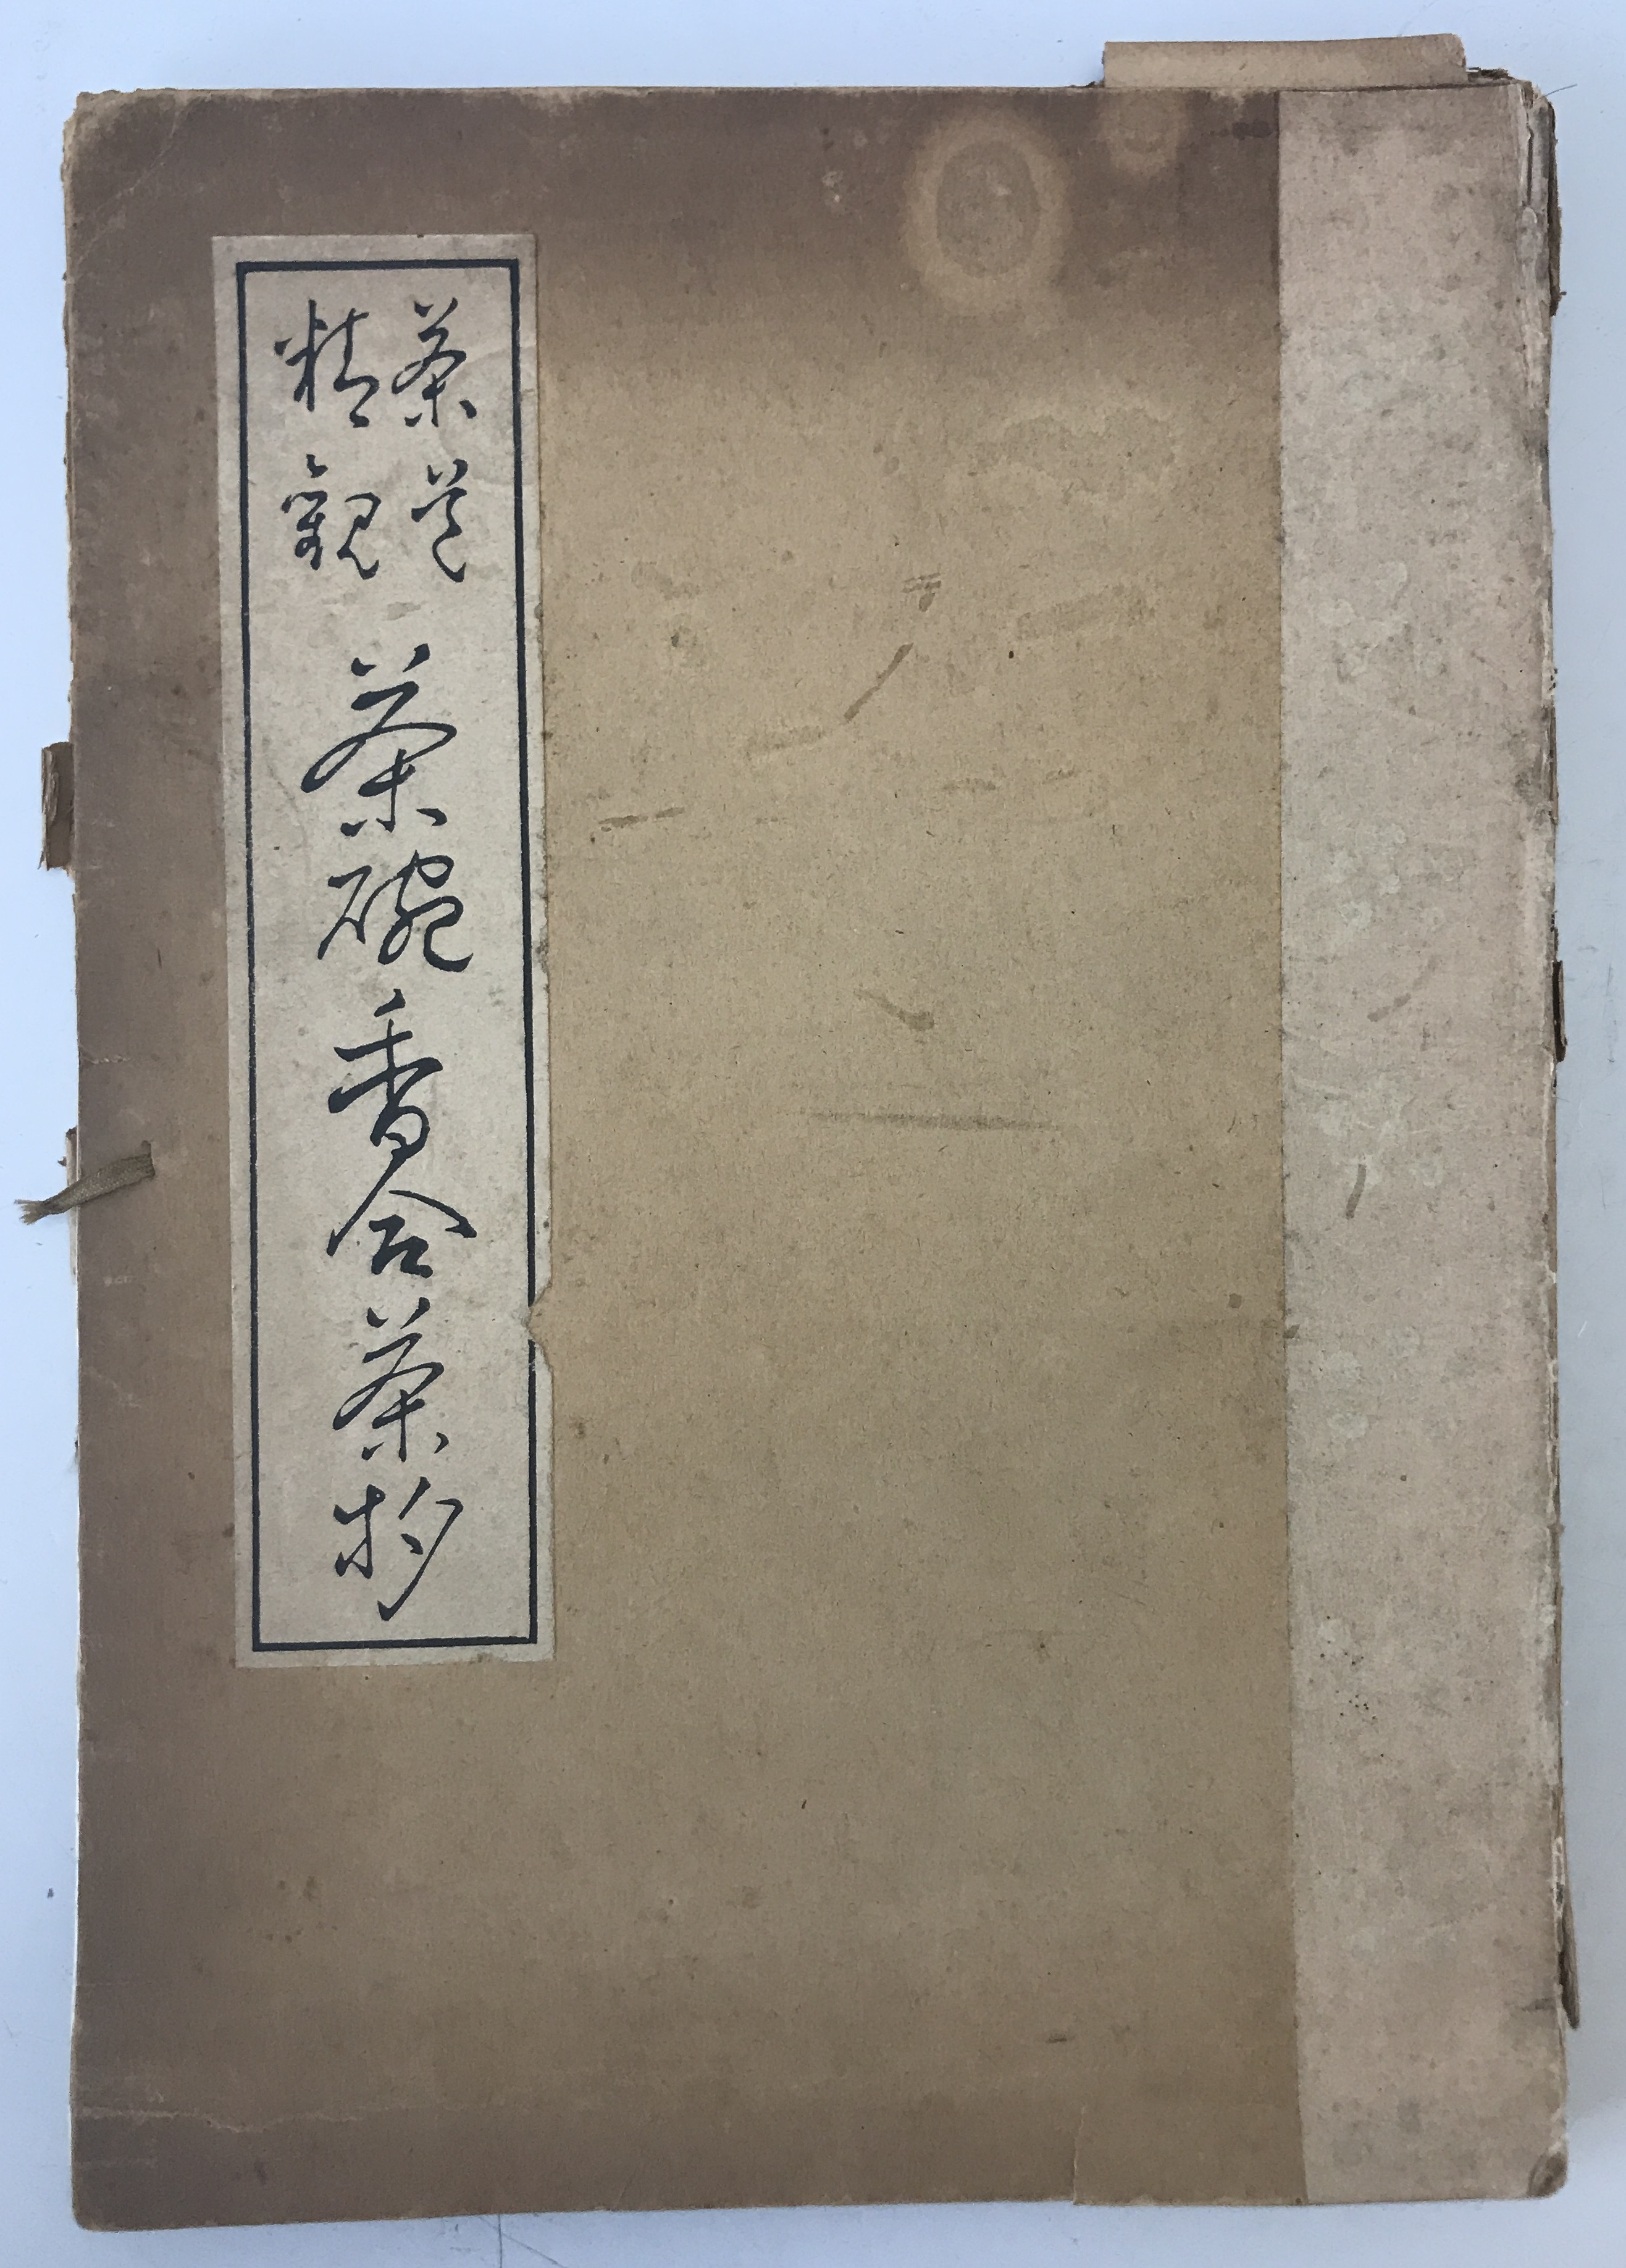 茶道
精觀
茶碗香合茶杓